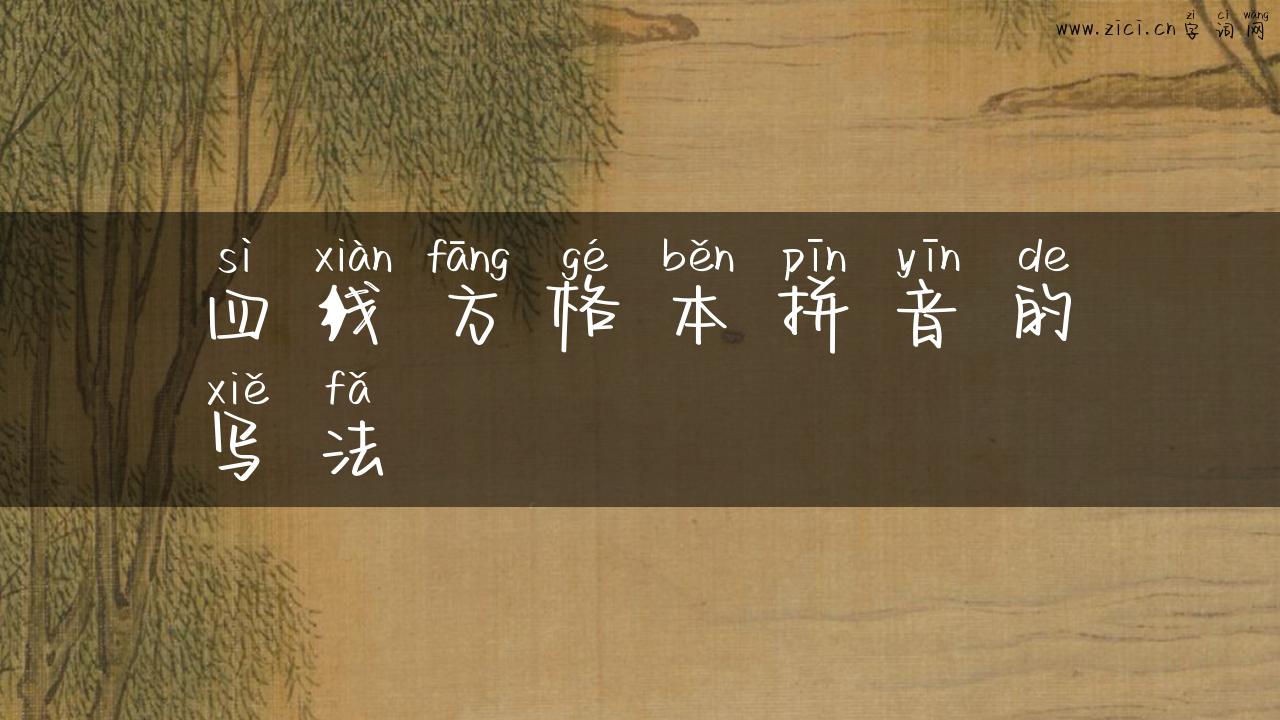 zì cí wǎng
www.zici.cn 字 词 网
sì xiàn fāng gé běn pīn yīn de
四 线 方 格 本 拼 音 的
xiě fǎ
写 法